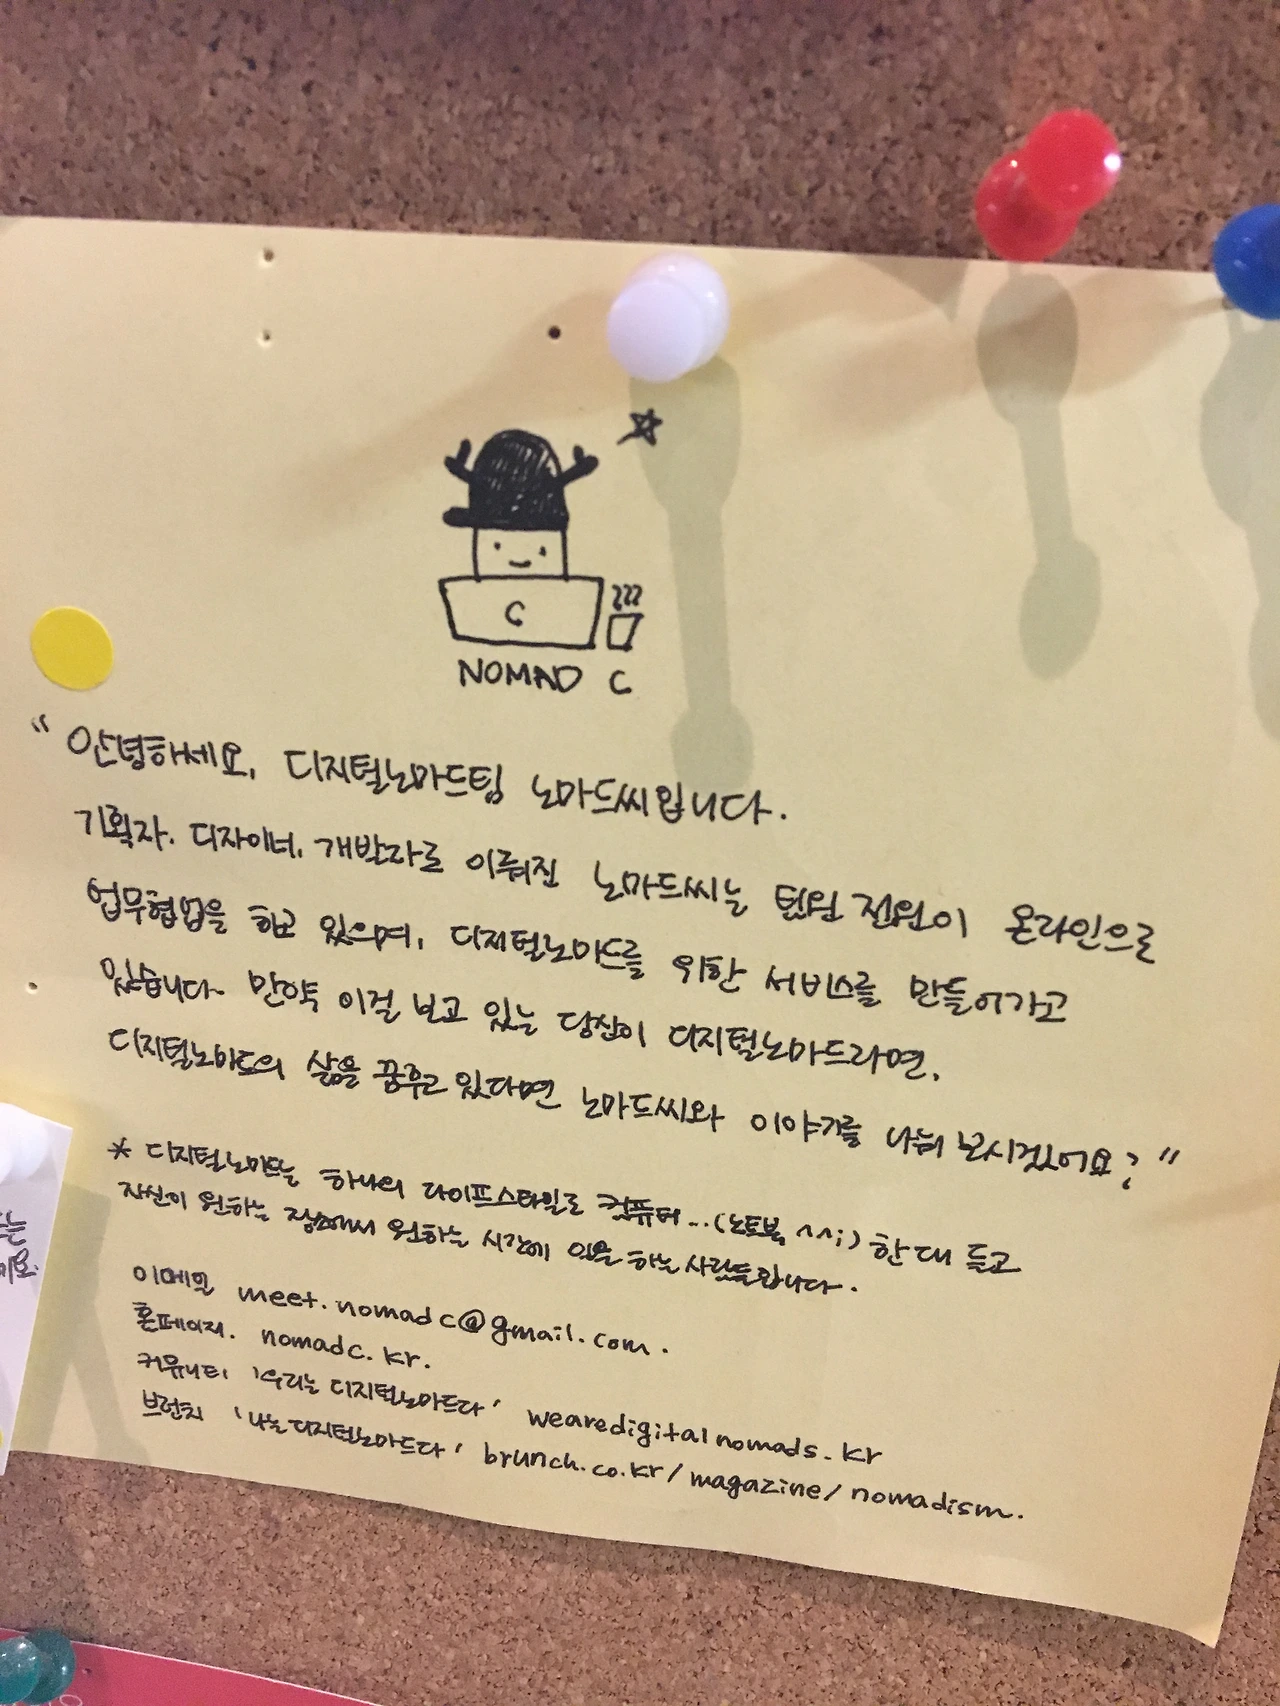 C
NOMAD C
“ 안녕하세요, 디지털노마드팀 노마드씨입니다.
기획자. 디자이너, 개발자로 이뤄진 노마드씨는 팀원 전원이 온라인으로
업무협업을 하고 있으며, 디지털노마드를 위한 서비스를 만들어가고
있습니다. 만약 이걸 보고 있는 당신이 디지털노마드라면,
디지털노마드의 삶을 꿈꾸고 있다면 노마드씨와 이야기를 나눠 보시겠어요? ”
* 디지털노마드는 하나의 라이프스타일로 컴퓨터...(노트북, ^^;) 한대 들고
자신이 원하는 장소에서 원하는 시간에 일을 하는 사람들입니다.
이메일 meet.nomadc@gmail.com.
홈페이지. nomadc.kr.
커뮤니티 '우리는 디지털노마드다' wearedigitalnomads.kr
브런치 '나는 디지털노마드다' brunch.co.kr/magazine/nomadism.